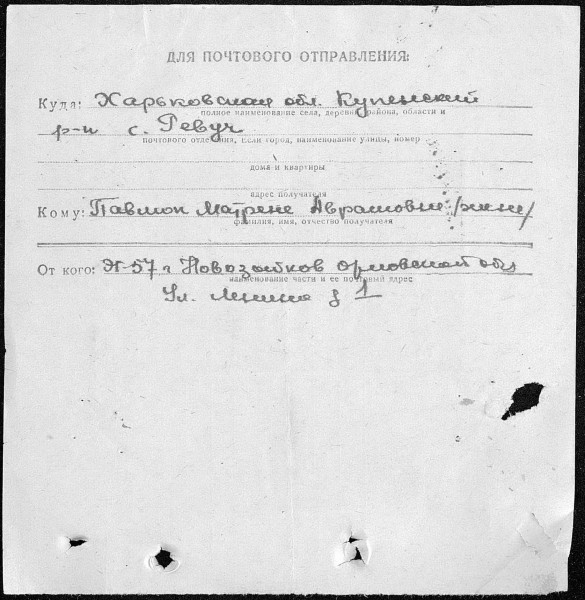 ДЛЯ ПОЧТОВОГО ОТПРАВЛЕНИЯ:
Куда: Харьковская обл. Купенский
полное наименование села, деревни, района, области и
р-н с. Ревуч
почтового отделения, если город, наименование улицы, номер
дома и квартиры
адрес получателя
Кому: Павлюк Матрене Аврамовне /жене/
фамилия, имя, отчество получателя
От кого: 57 г Новозыбков Орловской обл
наименование части и ее почтовый адрес
Ул. Ленина д 1